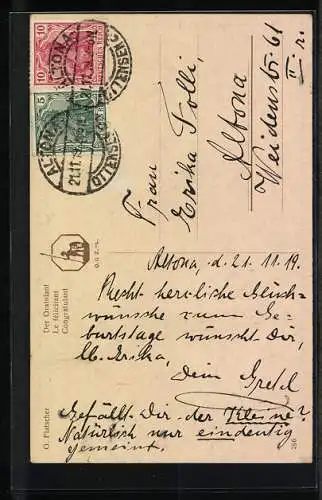 Frau
Erika Tolli,
Altona
Weidenstr. 61
II r.
Altona, d. 21.11.19.
Recht herzliche Glück-
wünsche zum Ge-
burtstage wünscht Dir,
lb. Erika,
Dein Gretel
Gefällt Dir der Kleine?
Natürlich nur eindeutig
gemeint.
Der Gratulant
Le félicitant
Congratulant
O. Platscher
ALTONA
10
10
ALTONA
5
21.11.19